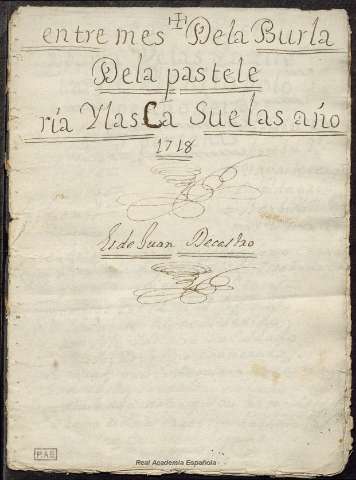 entre mes De la Burla
De la pastele
ría Y las Ca Suelas año
1718
Es de Juan Decastro
R.A.E.
Real Academia Española